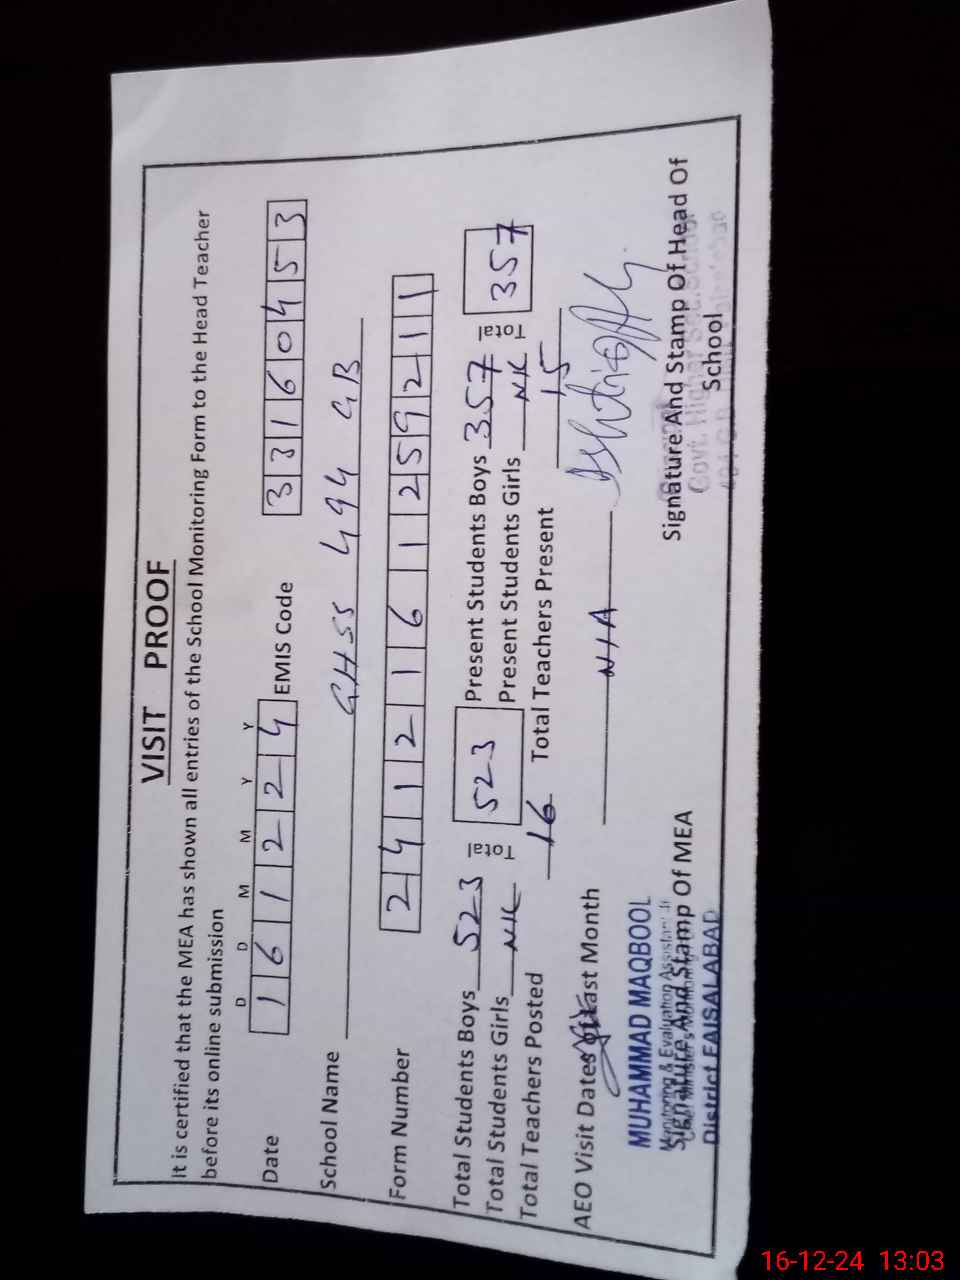 VISIT PROOF
It is certified that the MEA has shown all entries of the School Monitoring Form to the Head Teacher
before its online submission
D D M M Y Y
Date 1 6 1 2 2 4 EMIS Code 3 3 1 6 0 4 5 3
School Name GHSS 494 GB
Form Number 2 4 1 2 1 6 1 2 5 9 2 1 1
Total Students Boys 523 Total 523 Present Students Boys 357 Total 357
Total Students Girls NIL Present Students Girls NIL
Total Teachers Posted 16 Total Teachers Present 15
AEO Visit Dates Last Month N/A
MUHAMMAD MAQBOOL
Monitoring & Evaluation Assistant
Signature And Stamp Of MEA
District FAISALABAD
Signature And Stamp Of Head Of
School
Govt. Higher Sec. School
16-12-24 13:03